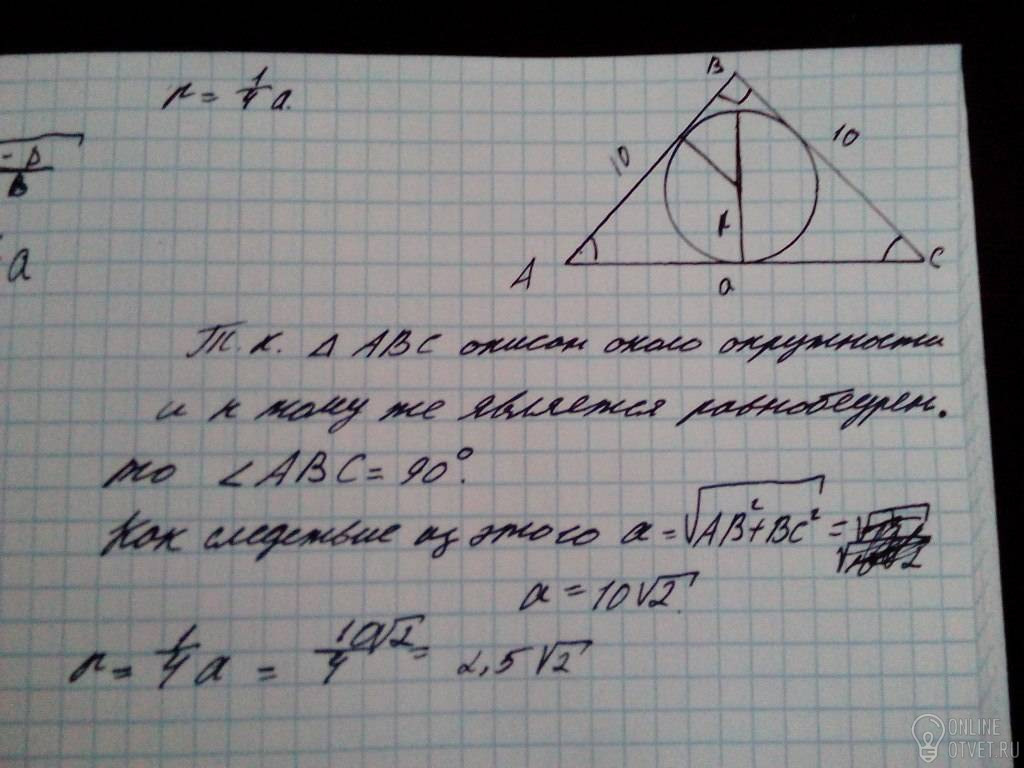 r = 1/4 a.
B
10
10
r
A
C
a
a
Т.к. △ ABC описан около окружности
и к тому же является равнобедрен.
то ∠ABC = 90°.
Как следствие из этого a = √AB²+BC² =
a = 10√2.
r = 1/4 a = 10√2/4 = 2,5√2
ONLINE
OTVET.RU